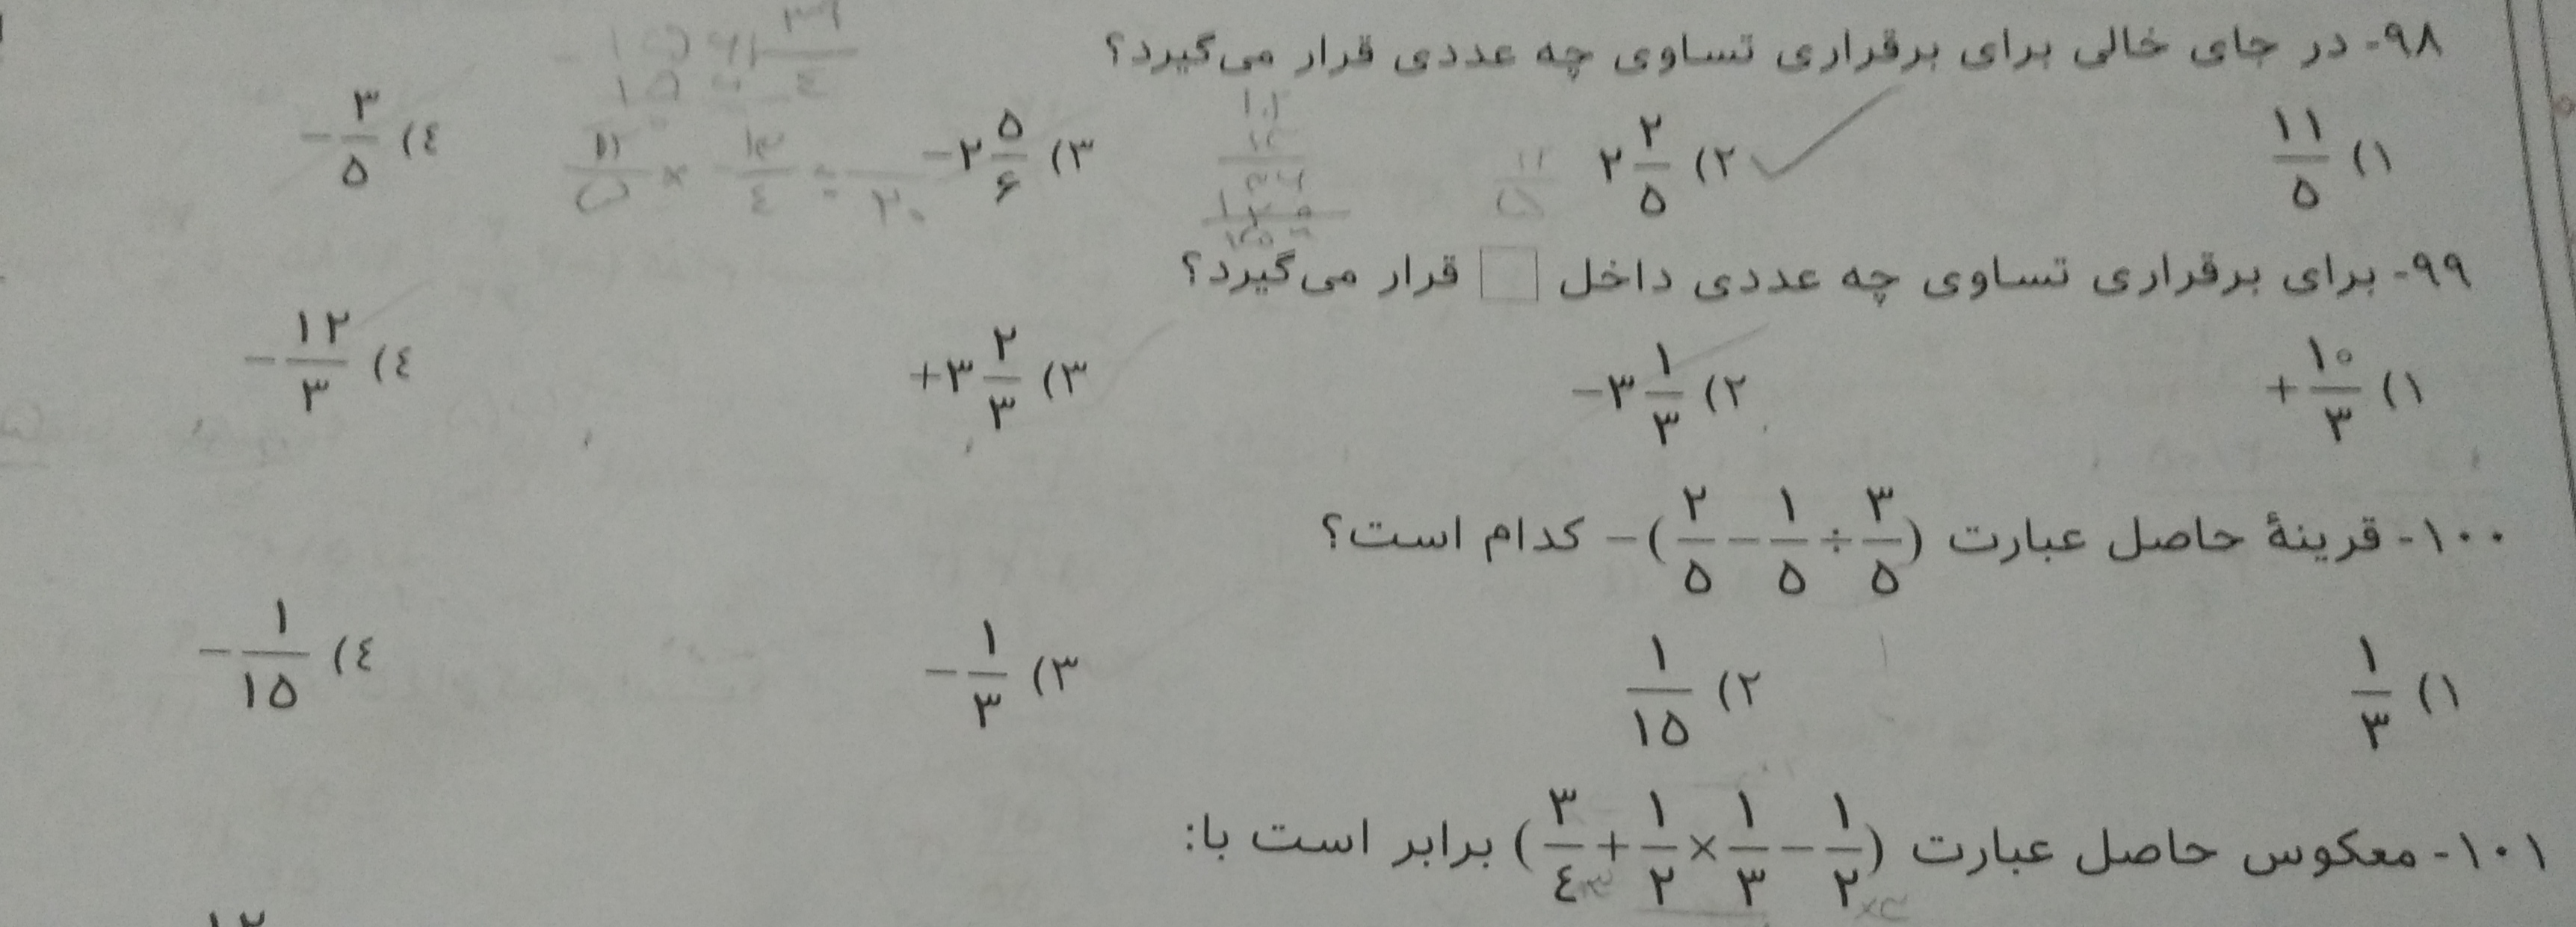 ۹۸- در جای خالی برای برقراری تساوی چه عددی قرار می‌گیرد؟
۱) ۱۱/۵ ۲) ۲ ۲/۵ ۳) -۲ ۵/۶ ٤) -۳/۵
۱۱/۵ × -۱۳/٤ = /۲۰
۹۹- برای برقراری تساوی چه عددی داخل □ قرار می‌گیرد؟
۱) +۱۰/۳ ۲) -۳ ۱/۳ ۳) +۳ ۲/۳ ٤) -۱۲/۳
۱۰۰- قرینهٔ حاصل عبارت -(۲/۵ - ۱/۵ ÷ ۳/۵) کدام است؟
۱) ۱/۳ ۲) ۱/۱۵ ۳) -۱/۳ ٤) -۱/۱۵
۱۰۱- معکوس حاصل عبارت (۳/٤ + ۱/۲ × ۱/۳ - ۱/۲) برابر است با: